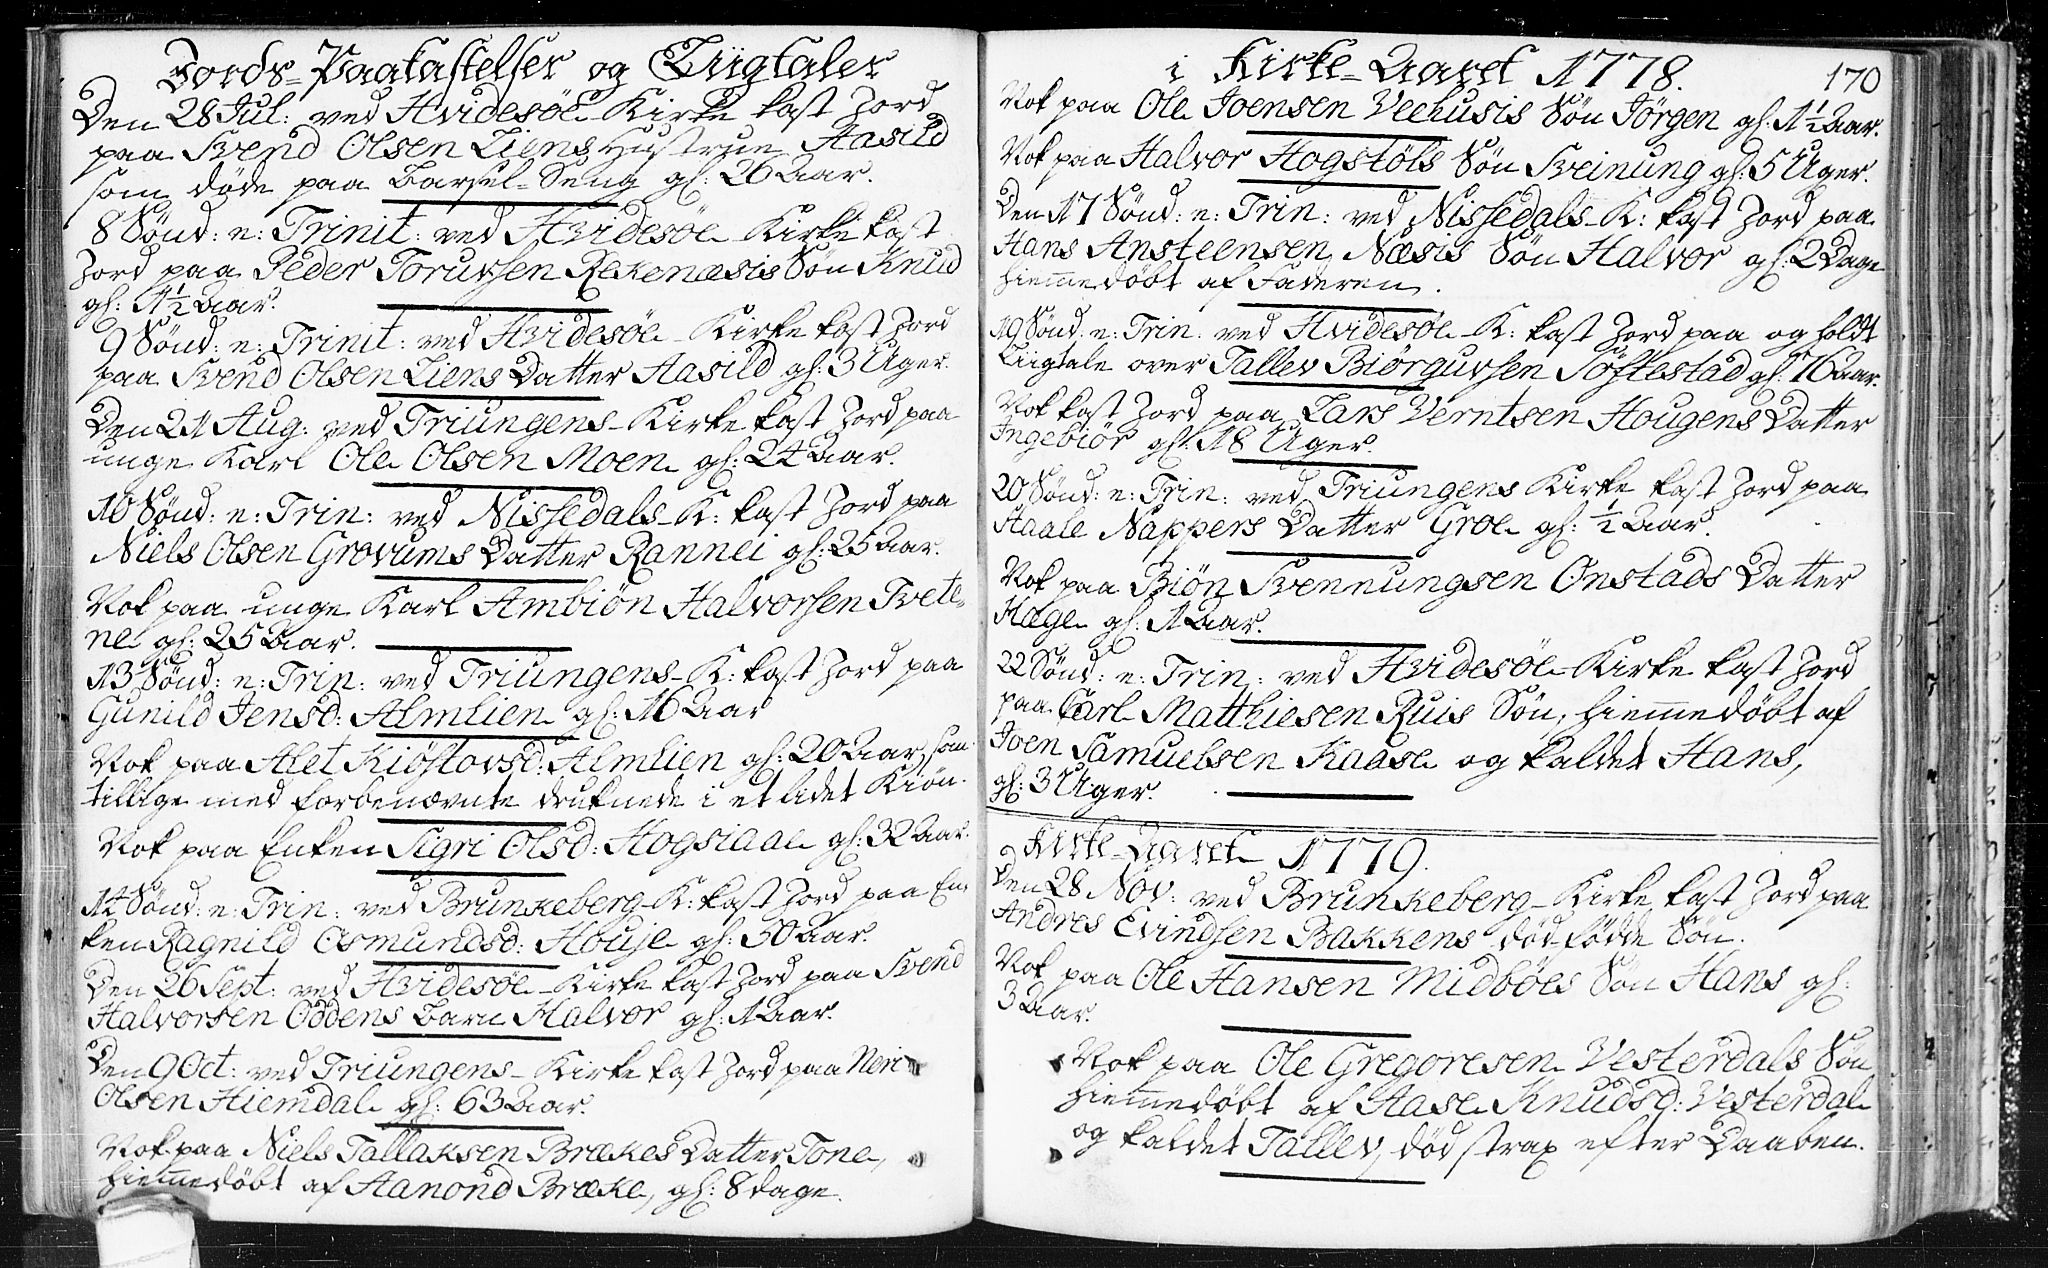 Jords-Paakastelser og Liigtaler
Den 28 Jul: ved Hvidesøe Kirke kast Jord
paa Svend Olsen Liens Hustrue Aasild
som døde paa Barsel-Seng gl: 26 Aar.
8 Sønd: e: Trinit: ved Hvidesøe Kirke kast
Jord paa Peder Toruvsen Rekenæsis Søn Knud
gl: 1½ Aar.
9 Sønd: e: Trinit: ved Hvidesøe Kirke kast Jord
paa Svend Olsen Liens Datter Aasild gl: 3 Uger.
Den 21 Aug: ved Triungens-Kirke kast Jord paa
unge Karl Ole Olsen Moen gl: 24 Aar.
10 Sønd: e: Trin: ved Nissedals-K: kast Jord paa
Niels Olsen Grovums Datter Rannei gl: 25 Aar.
Nok paa unge Karl Ambiøn Halvorsen Tvete-
ne gl: 25 Aar.
13 Sønd: e: Trin: ved Triungens-K: kast Jord paa
Gunild Jensd: Almlien gl: 16 Aar
Nok paa Alet Kiøstovsd: Almlien gl: 20 Aar, som
tillige med forbenævnte druknede i et lidet Kiøn.
Nok paa Enken Sigri Olsd: Hogsiaae gl: 32 Aar.
14 Sønd: e: Trin: ved Brunkeberg-K: kast Jord paa En-
ken Ragnild Osmundsd: Houje gl: 50 Aar.
Den 26 Sept: ved Hvidesøe-Kirke kast Jord paa Svend
Halvorsen Oddens Barn Halvor gl: 1 Aar.
Den 9 Oct: ved Triungens-Kirke kast Jord paa Neri
Olsen Hiemdal gl: 63 Aar.
Nok paa Niels Tallaksen Brækes Datter Tone,
hiemmedøbt af Aanond Bræke, gl: 8 dage.
i Kirke-Aaret 1778.
170
Nok paa Ole Joensen Veehusis Søn Jørgen gl: 1½ Aar.
Nok paa Halvor Hogstøls Søn Sveinung gl: 5 Uger.
Den 17 Sønd: e: Trin: ved Nissedals-K: kast Jord paa
Hans Ansteensen Næsis Søn Halvor gl: 2 Dage
hiemmedøbt af Faderen.
19 Sønd: e: Trin: ved Hvidesøe-K: kast Jord paa og holdt
Liigtale over Tallev Biørguvsen Søftestad gl: 76 Aar.
Nok kast Jord paa Lars Verntsen Hougens Datter
Ingebiør gl: 18 Uger.
20 Sønd: e: Trin: ved Triungens Kirke kast Jord paa
Staale Nappers Datter Groe gl: ½ Aar.
Nok paa Biøn Svennungsen Onstads Datter
Hæge gl: 1 Aar.
22 Sønd: e: Trin: ved Hvidesøe-Kirke kast Jord
paa Carl Matthiesen Ruis Søn, hiemmedøbt af
Joen Samuelsen Kaase og kaldet Hans,
gl: 3 Uger.
Kirke-Aaret 1779.
Den 28 Nov: ved Brunkeberg-Kirke kast Jord paa
Andres Evindsen Bakkens død-fødde Søn.
Nok paa Ole Hansen Midbøes Søn Hans gl:
3 Aar.
Nok paa Ole Gregoresen Vesterdals Søn
hiemmedøbt af Aase Knudsd: Vesterdal
og kaldet Tallev, død strax efter Daaben.